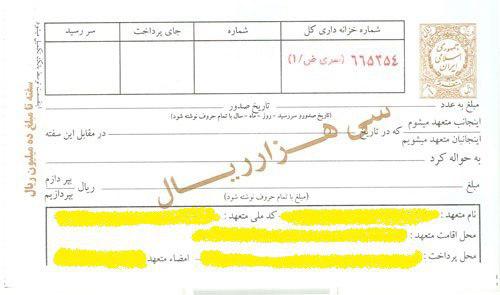 شماره خزانه داری کل
شماره
جای پرداخت
سر رسید
۶۶۵۲۵۴ (سری ض/۱)
جمهوری
اسلامی
ایران
مبلغ به عدد
تاریخ صدور
(تاریخ صدور و سررسید - روز - ماه - سال با تمام حروف نوشته شود)
اینجانب متعهد میشوم
اینجانبان متعهد میشویم
که در تاریخ
در مقابل این سفته
به حواله کرد
سی هزار ریال
مبلغ
ریال
بپردازم
بپردازیم
(مبلغ با تمام حروف نوشته شود)
نام متعهد :
کد ملی متعهد :
محل اقامت متعهد :
محل پرداخت :
امضاء متعهد
سفته تا مبلغ ده میلیون ریال